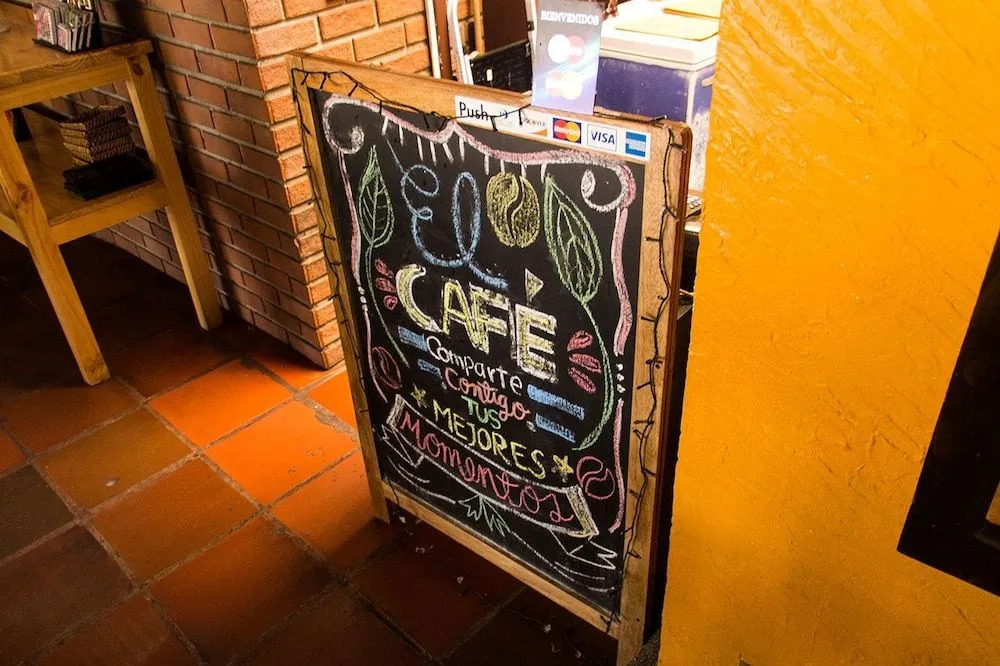 BIENVENIDOS
Push
DISCOVER
MasterCard
VISA
El
CAFÉ
Comparte
Contigo
TUS
MEJORES
Momentos